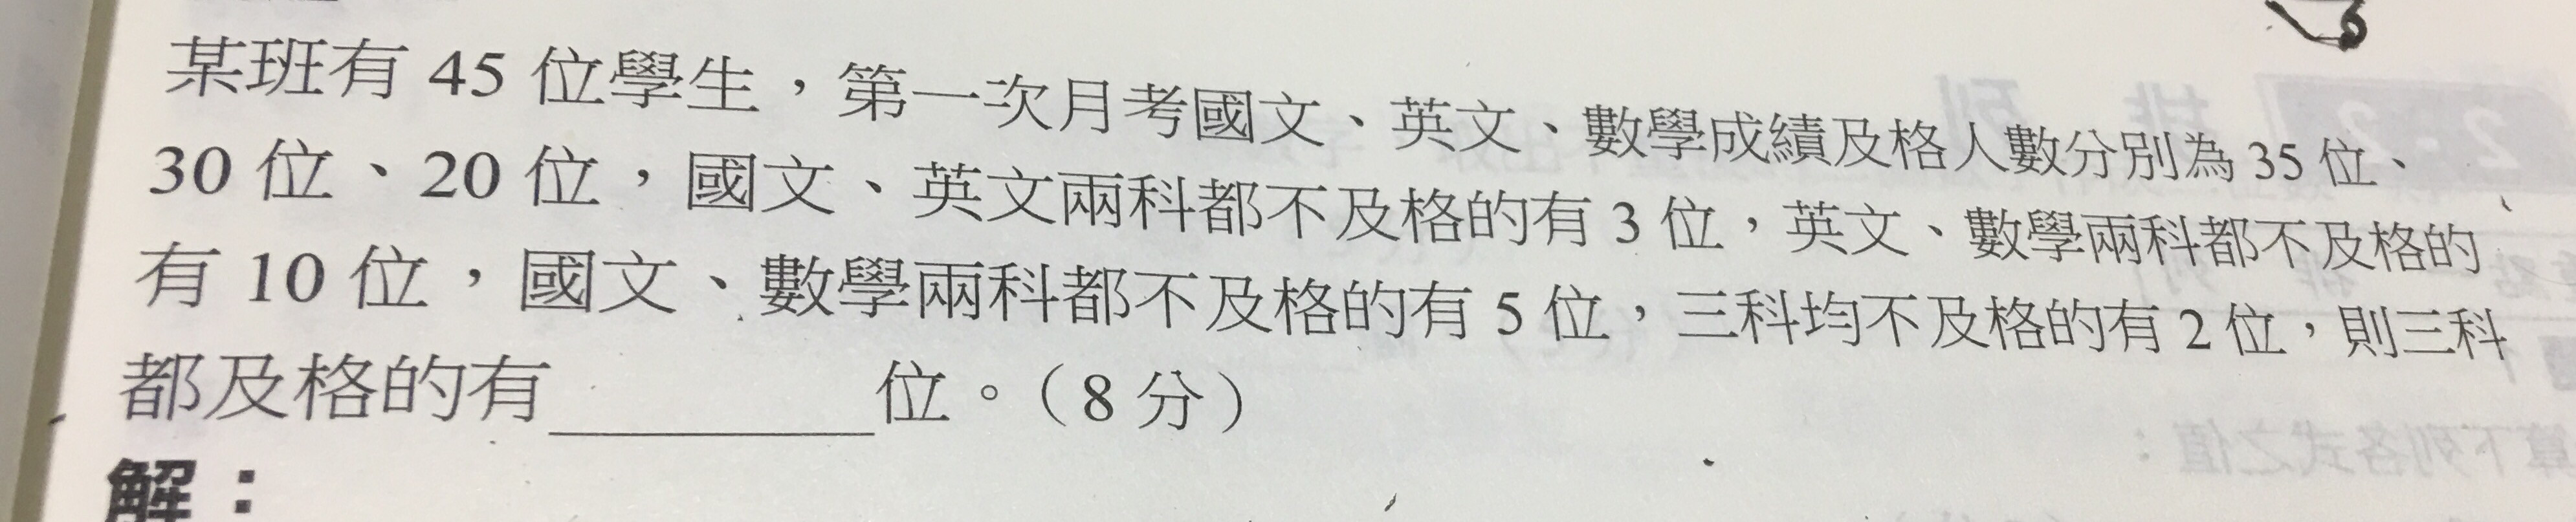 某班有 45 位學生，第一次月考國文、英文、數學成績及格人數分別為 35 位、
30 位、20 位，國文、英文兩科都不及格的有 3 位，英文、數學兩科都不及格的
有 10 位，國文、數學兩科都不及格的有 5 位，三科均不及格的有 2 位，則三科
都及格的有________位。（8 分）
解：